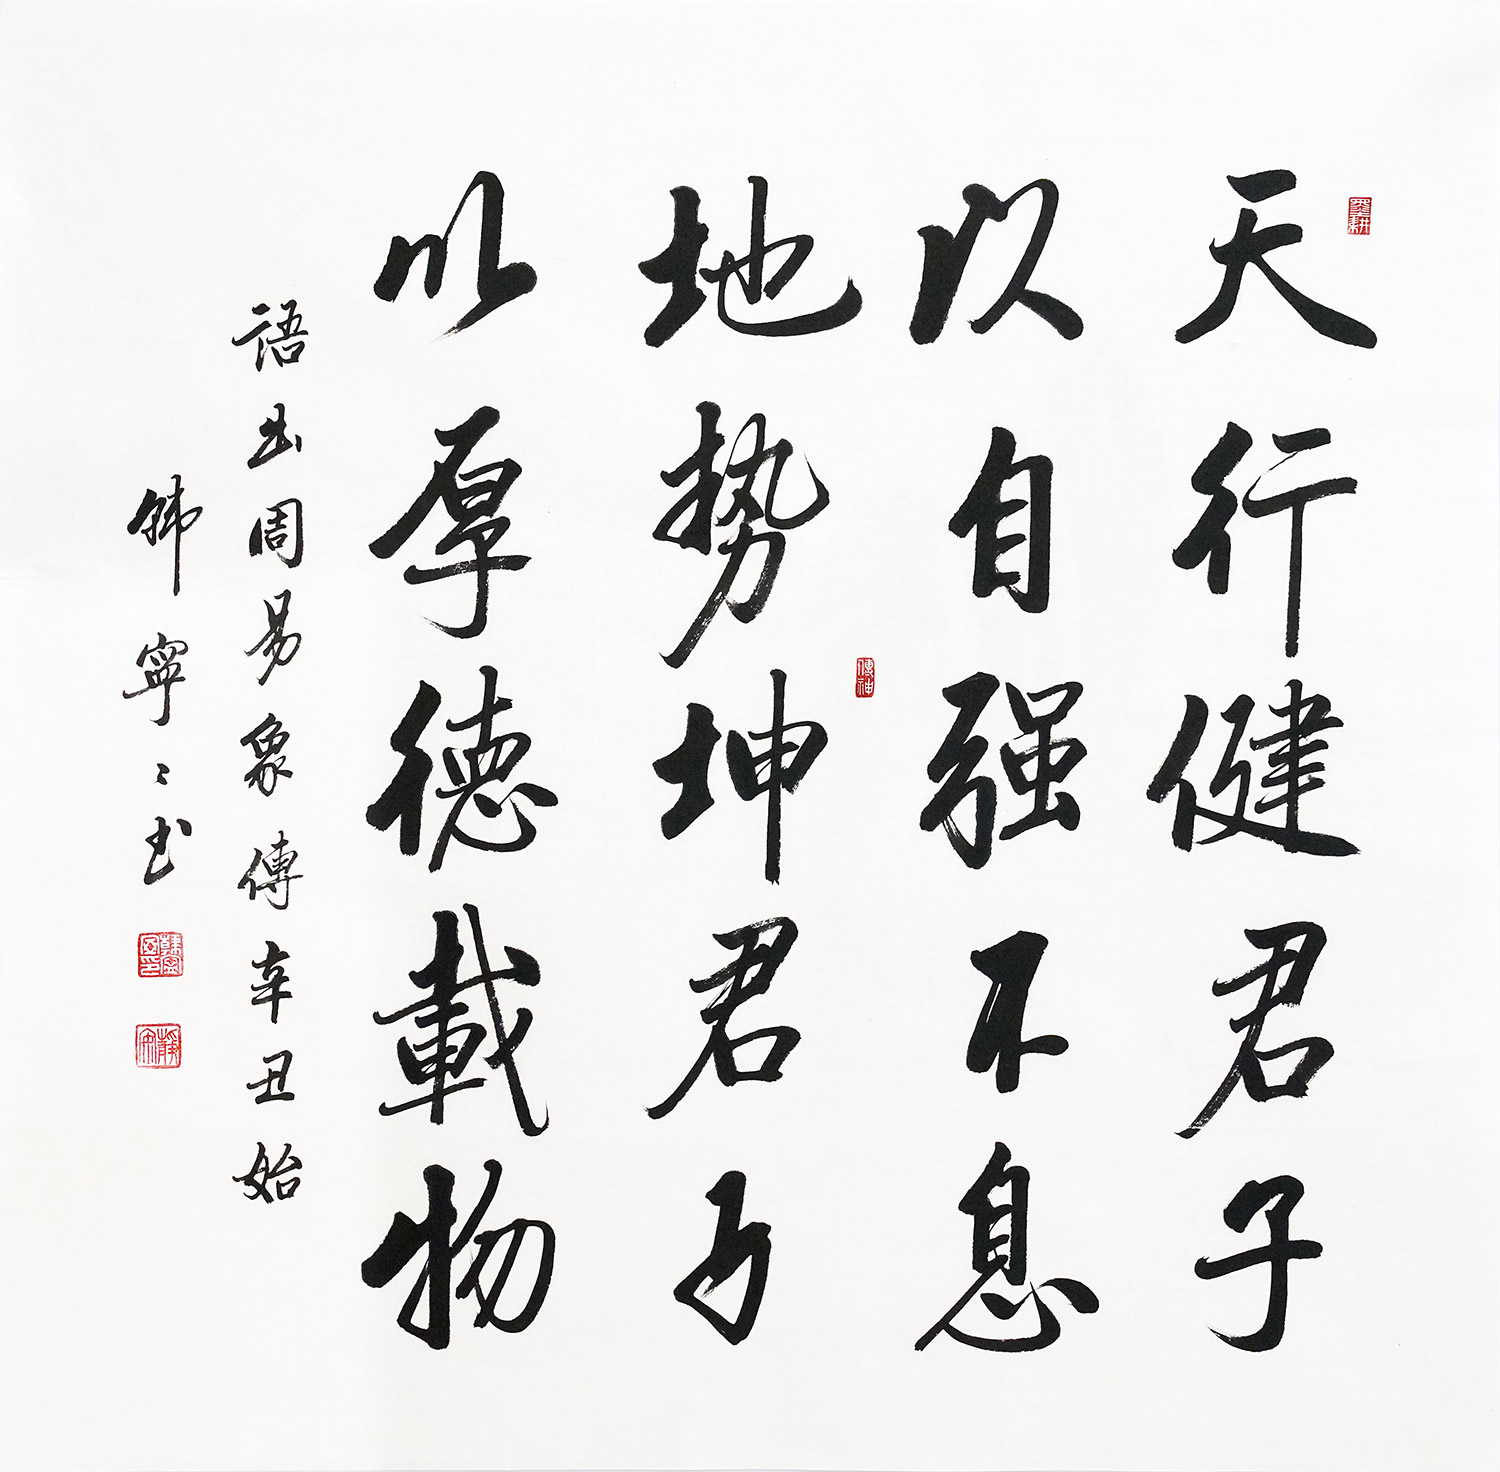 天行健君子
以自强不息
地势坤君子
以厚德載物
語出周易象傳辛丑始
韩寧々书
傳神